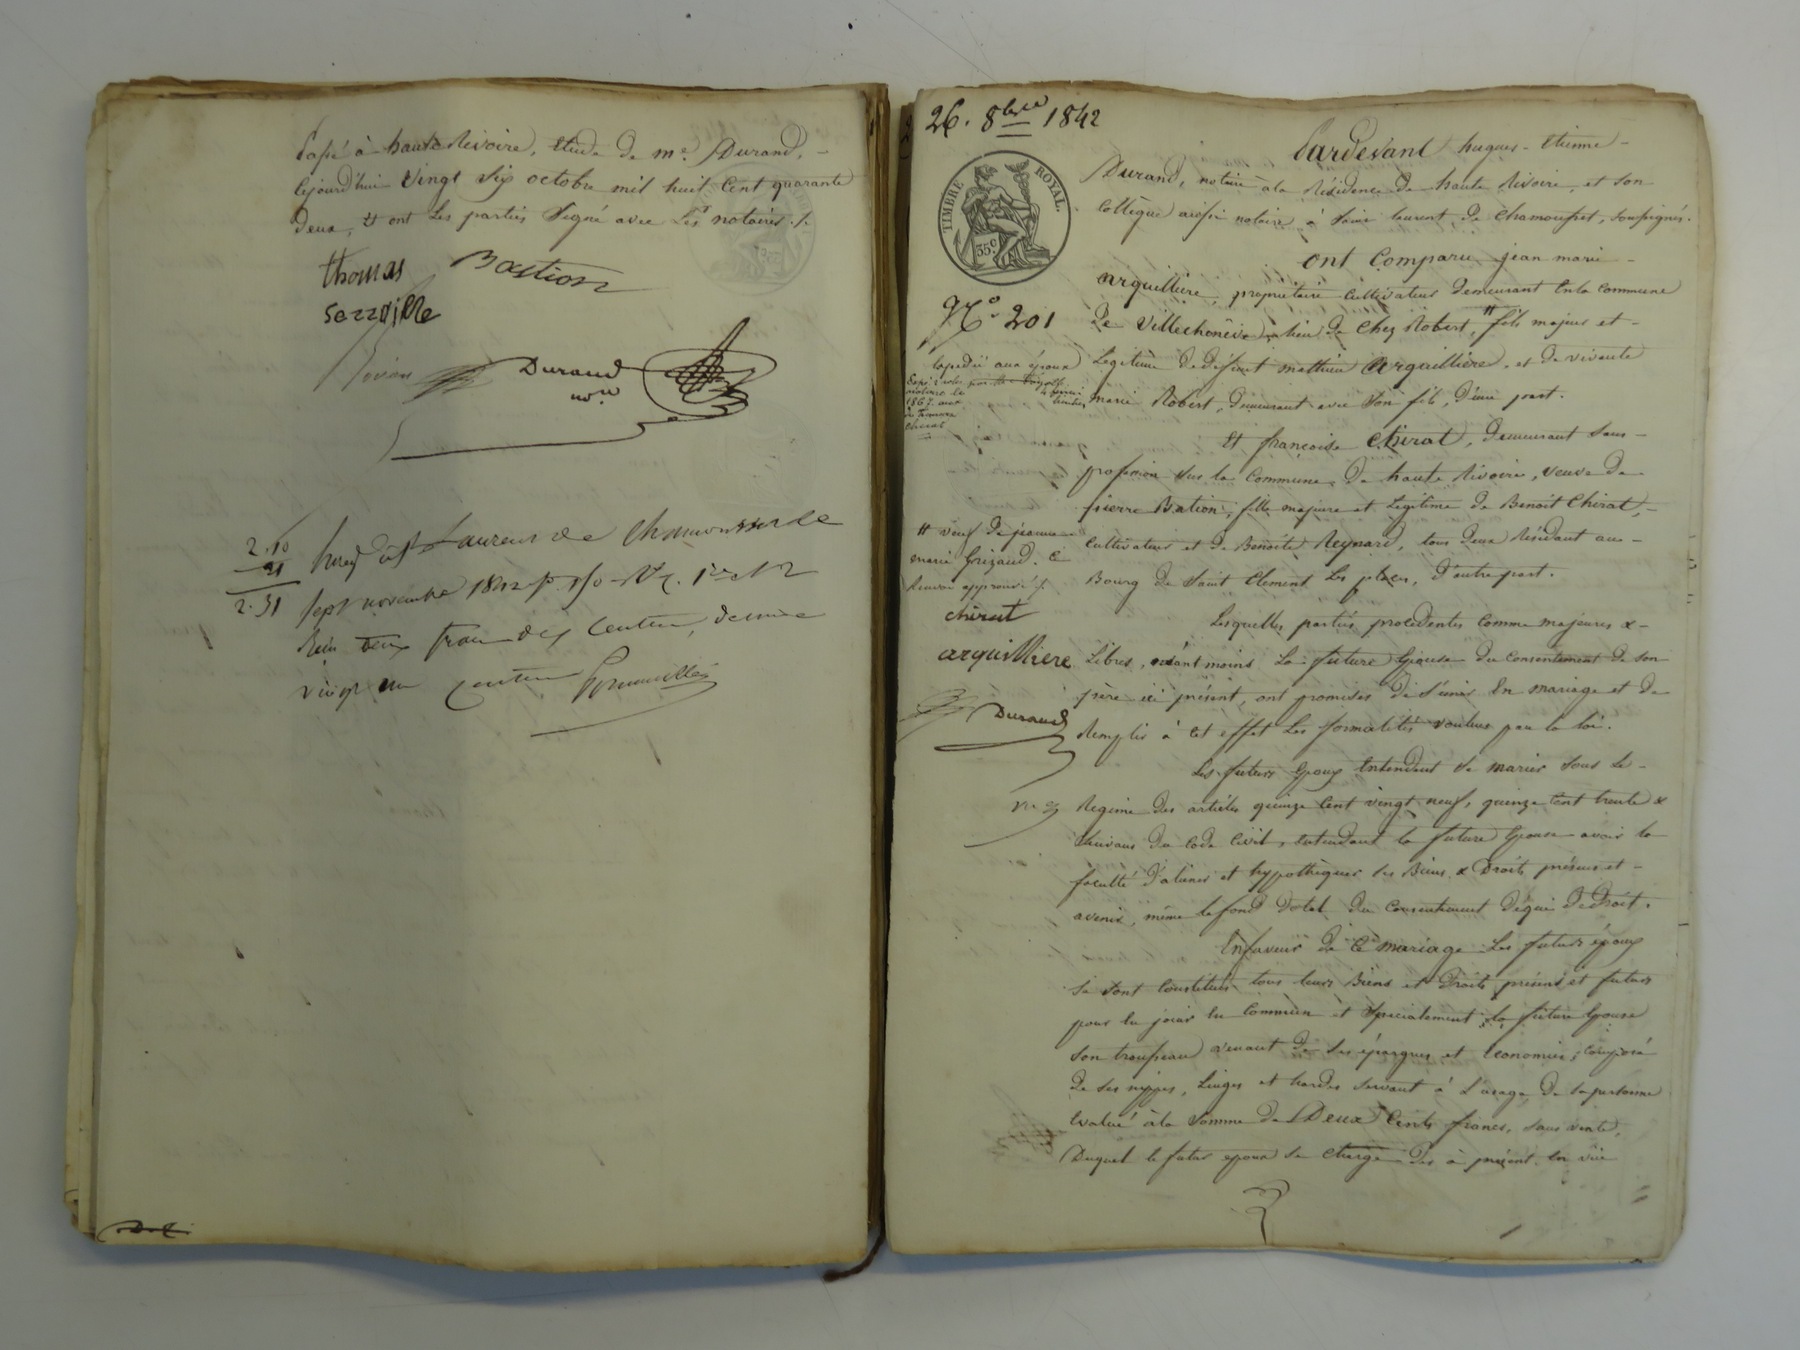 Passé à haute Rivoire, étude de me. Durand,
Cejourd'hui Vingt Six octobre mil huit Cent quarante
deux, Et ont Les parties Signé avec Les notaires ./.
thomas
Bastion
Durand
nore
2.10
21
2.31
St Laurent de Chamousset le
Sept novembre 1842
deux francs dix Centimes, decime
vingt un centimes
26. 8bre 1842
TIMBRE ROYAL.
35c
Pardevant hugues-Etienne
Durand, notaire à la Résidence de haute Rivoire, et son
Collègue aussi notaire à Saint laurent de Chamousset, soussignés.
ont Comparu jean marie
arquilliere, propriétaire Cultivateur demeurant En la Commune
No. 201
De Villechenêve, lieu de Chez Robert, # fils majeur et
Légitime de défunt mathieu Arquilliere, et de vivante
marie Robert, demeurant avec Son fils, d'une part.
Et françoise Chirat, demeurant sans
profession sur la Commune de haute Rivoire, veuve de
pierre Bation, fille majeure et Légitime de Benoit Chirat,
# veuf de jeanne
marie Grizaud. Ce
Renvoi approuvé ./.
Cultivateur et de Benoite Reynard, tous deux Résidant au
Bourg de Saint Clement Les places, d'autre part.
chirat
arquilliere
Durand
Lesquelles parties procédentes Comme majeures &
Libres, néant moins La future Epouse du Consentement de son
père ici présent, ont promises de S'unir En mariage et de
Remplir à Cet effet Les formalités voulues par la loi.
Les futurs Epoux Entendent Se marier Sous Le
Régime des articles quinze Cent vingt neuf, quinze Cent trente &
Suivans du Code Civil, entendant la future Epouse avoir la
faculté d'aliéner et hypothèquer Ses Biens & Droits présens et
avenir, même le fond Dotal du Consentement de qui De Droit.
En faveur de Ce mariage Les futurs époux
Se sont Constitués tous leurs Biens et Droits présens et futurs
pour En jouir En Commun et Spécialement la future Epouse
Son trousseau venant de Ses épargnes et Economies, Composé
de Ses nippes, Linges et hardes Servant à L'usage de Sa personne
Evalué à la Somme de Deux Cents francs, sans vente,
Duquel le futur époux Se Charge dès à présent En vüe